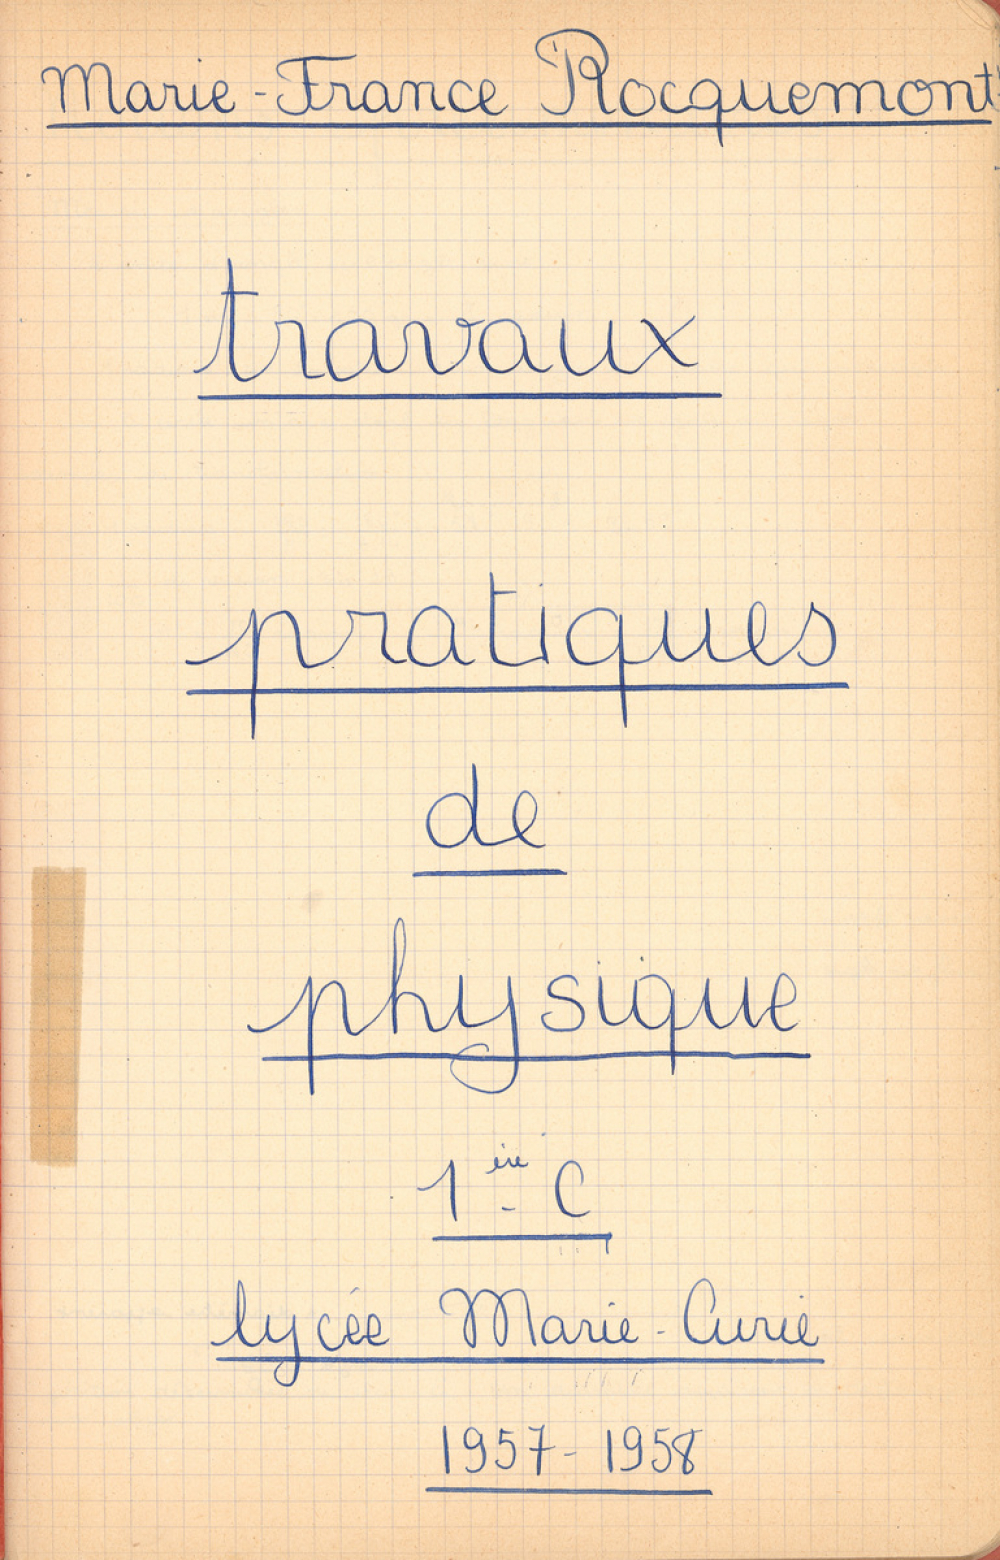 Marie-France Rocquemont
travaux
pratiques
de
physique
1ère C
lycée Marie-Curie
1957-1958